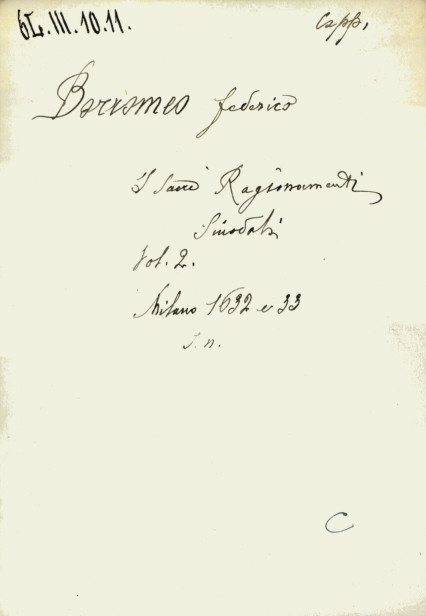 6L.III.10.11.
Capp.
Borromeo federico
I Sacri Ragionamenti
Sinodali
Vol. 2.
Milano 1632 e 33
S. n.
C